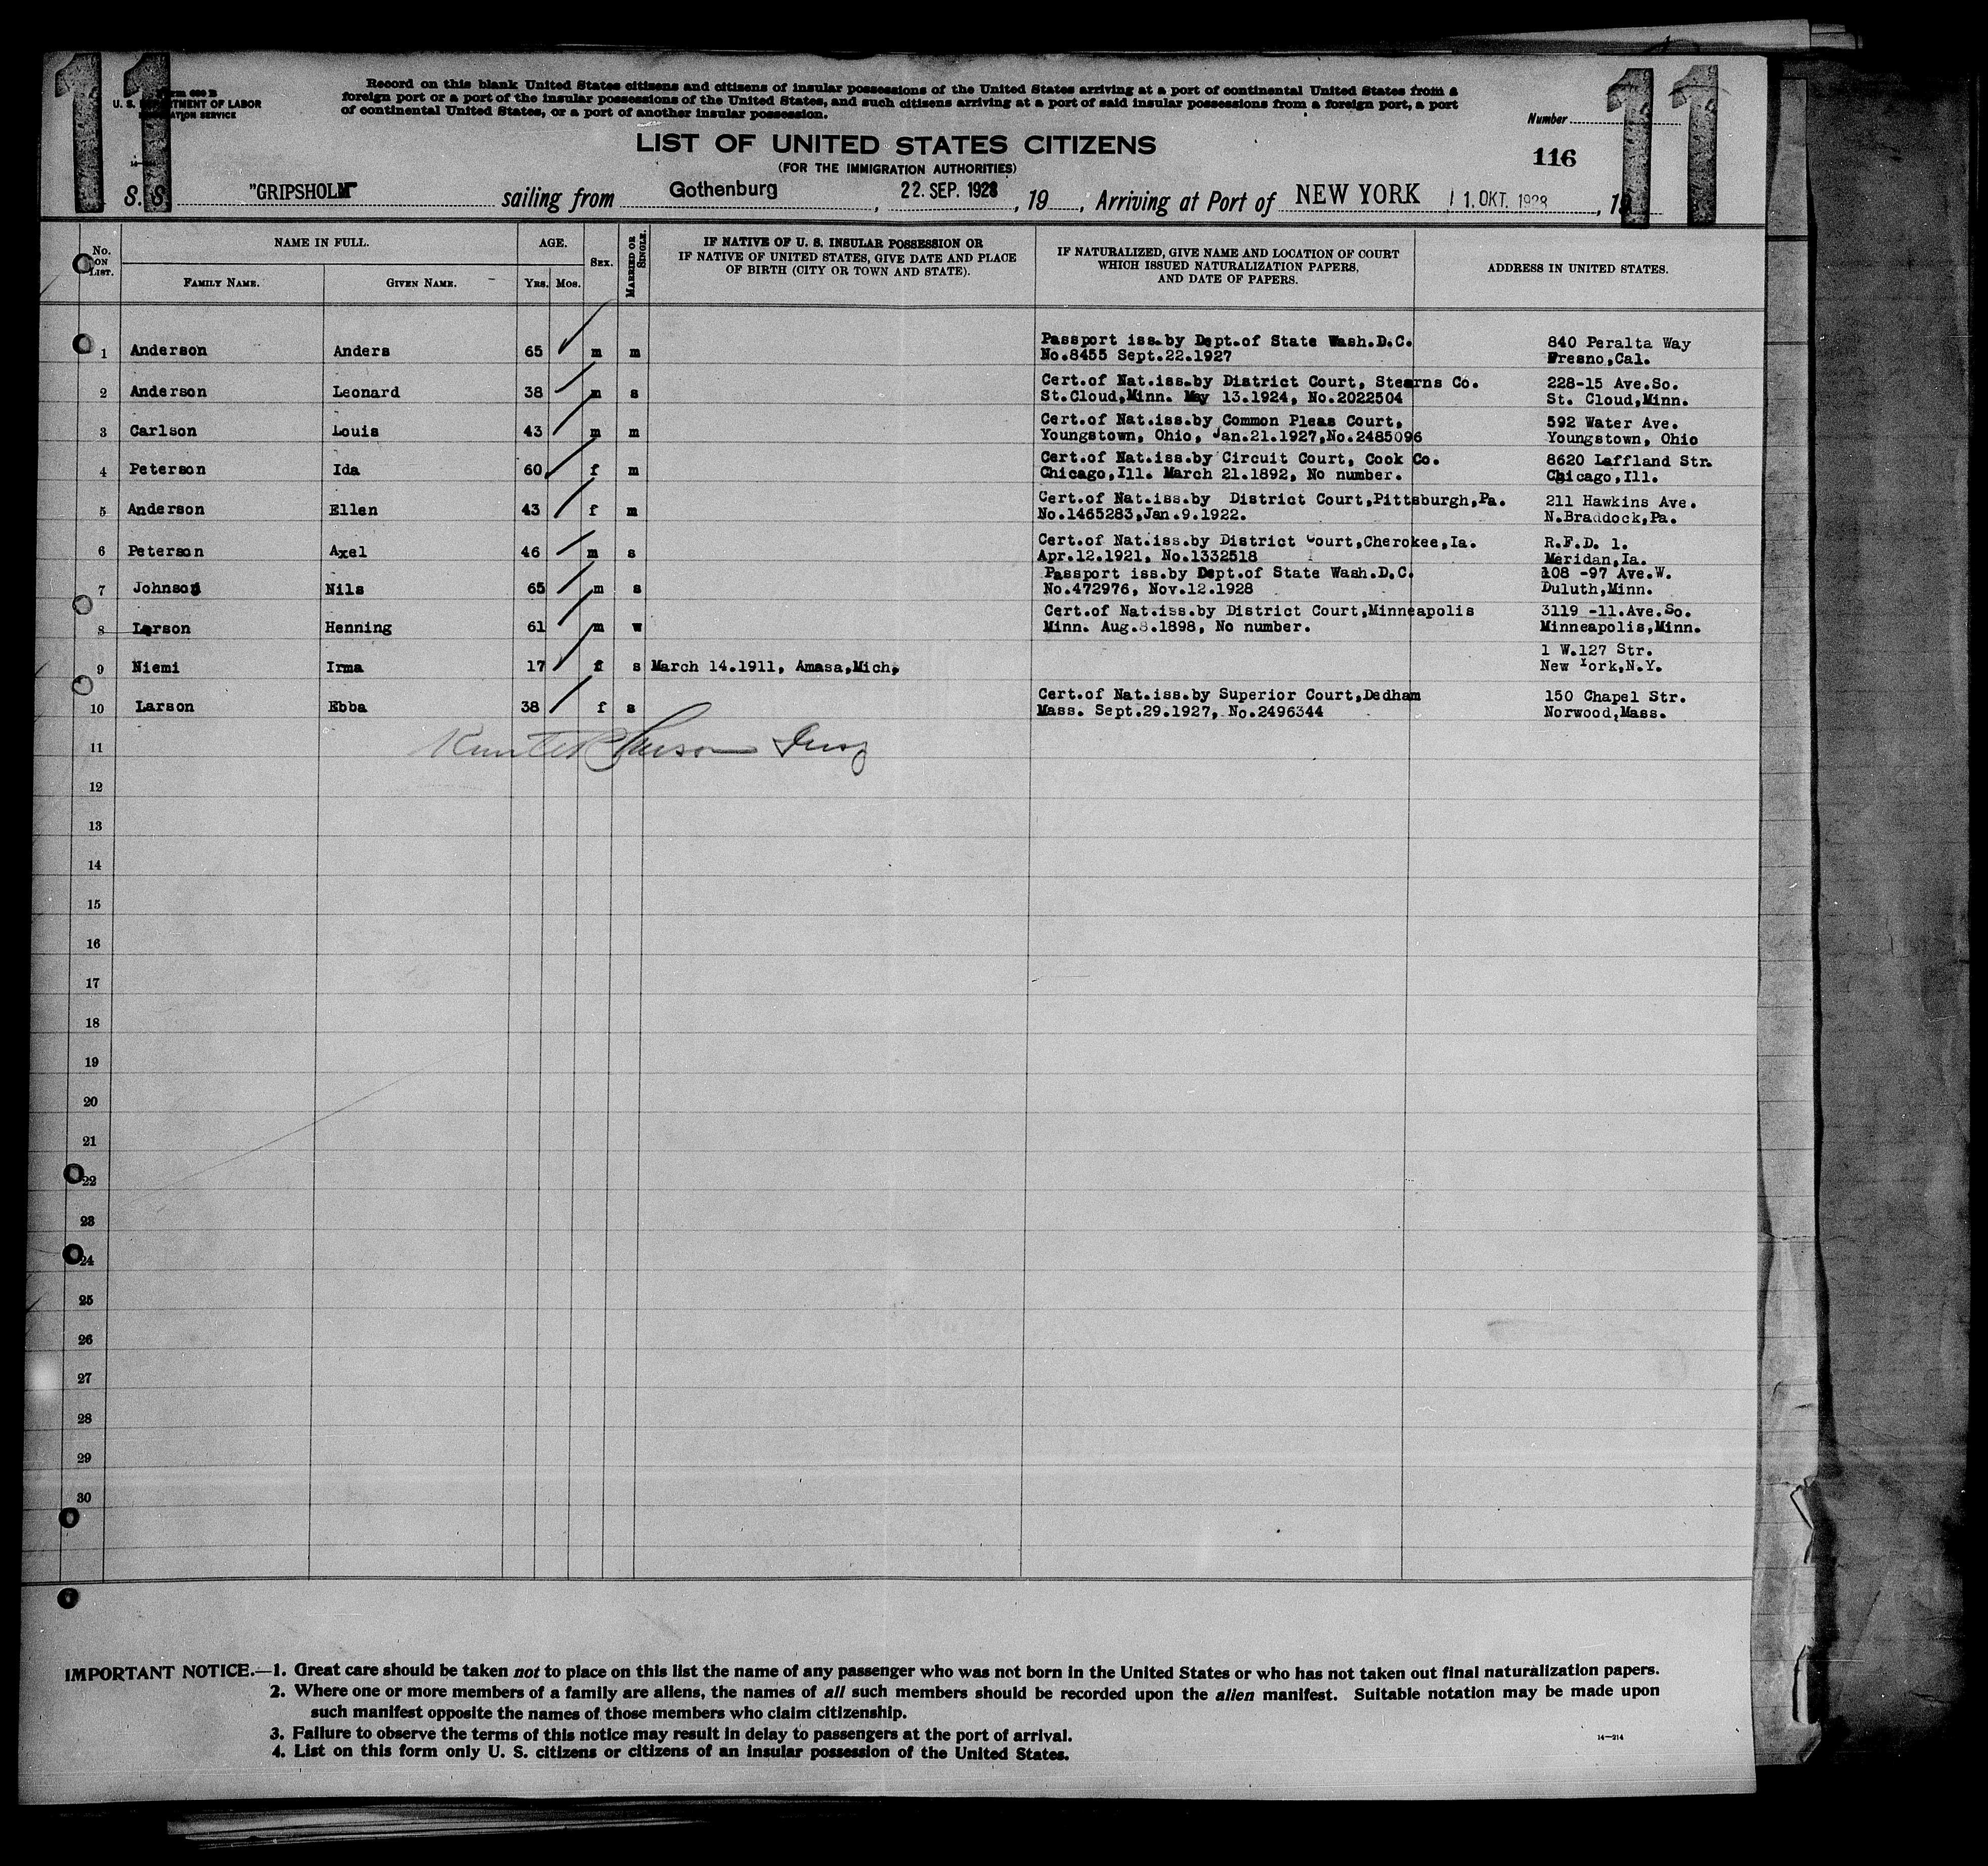 11
11
Form 630 B
U. S. DEPARTMENT OF LABOR
IMMIGRATION SERVICE
Record on this blank United States citizens and citizens of insular possessions of the United States arriving at a port of continental United States from a
foreign port or a port of the insular possessions of the United States, and such citizens arriving at a port of said insular possessions from a foreign port, a port
of continental United States, or a port of another insular possession.
Number
116
LIST OF UNITED STATES CITIZENS
(FOR THE IMMIGRATION AUTHORITIES)
S. S. "GRIPSHOLM" sailing from Gothenburg, 22. SEP. 1928, 19 , Arriving at Port of NEW YORK 1 1. OKT. 1928, 19
No. ON LIST.
NAME IN FULL.
FAMILY NAME.
GIVEN NAME.
AGE.
YRS.
MOS.
SEX.
MARRIED OR SINGLE.
IF NATIVE OF U. S. INSULAR POSSESSION OR
IF NATIVE OF UNITED STATES, GIVE DATE AND PLACE
OF BIRTH (CITY OR TOWN AND STATE).
IF NATURALIZED, GIVE NAME AND LOCATION OF COURT
WHICH ISSUED NATURALIZATION PAPERS,
AND DATE OF PAPERS.
ADDRESS IN UNITED STATES.
1 Anderson Anders 65 m m Passport iss.by Dept.of State Wash.D.C. 840 Peralta Way
No.8455 Sept.22.1927 Fresno,Cal.
2 Anderson Leonard 38 m s Cert.of Nat.iss.by District Court, Stearns Co. 228-15 Ave.So.
St.Cloud,Minn. May 13.1924, No.2022504 St. Cloud,Minn.
3 Carlson Louis 43 m m Cert.of Nat.iss.by Common Pleas Court, 592 Water Ave.
Youngstown, Ohio, Jan.21.1927,No.2485096 Youngstown, Ohio
4 Peterson Ida 60 f m Cert.of Nat.iss.by Circuit Court, Cook Co. 8620 Laffland Str.
Chicago,Ill. March 21.1892, No number. Chicago,Ill.
5 Anderson Ellen 43 f m Cert.of Nat.iss.by District Court,Pittsburgh,Pa. 211 Hawkins Ave.
No.1465283,Jan.9.1922. N.Braddock,Pa.
6 Peterson Axel 46 m s Cert.of Nat.iss.by District Court,Cherokee,Ia. R.F.D. 1.
Apr.12.1921, No.1332518 Meridan,Ia.
7 Johnson Nils 65 m s Passport iss.by Dept.of State Wash.D.C. 108 -97 Ave.W.
No.472976, Nov.12.1928 Duluth,Minn.
8 Larson Henning 61 m w Cert.of Nat.iss.by District Court,Minneapolis 3119 -11.Ave.So.
Minn. Aug.8.1898, No number. Minneapolis,Minn.
9 Niemi Irma 17 f s March 14.1911, Amasa,Mich, 1 W.127 Str.
New York,N.Y.
10 Larson Ebba 38 f s Cert.of Nat.iss.by Superior Court,Dedham 150 Chapel Str.
Mass. Sept.29.1927, No.2496344 Norwood,Mass.
11
12
13
14
15
16
17
18
19
20
21
22
23
24
25
26
27
28
29
30
IMPORTANT NOTICE.—1. Great care should be taken not to place on this list the name of any passenger who was not born in the United States or who has not taken out final naturalization papers.
2. Where one or more members of a family are aliens, the names of all such members should be recorded upon the alien manifest. Suitable notation may be made upon
such manifest opposite the names of those members who claim citizenship.
3. Failure to observe the terms of this notice may result in delay to passengers at the port of arrival.
4. List on this form only U. S. citizens or citizens of an insular possession of the United States.
14—214